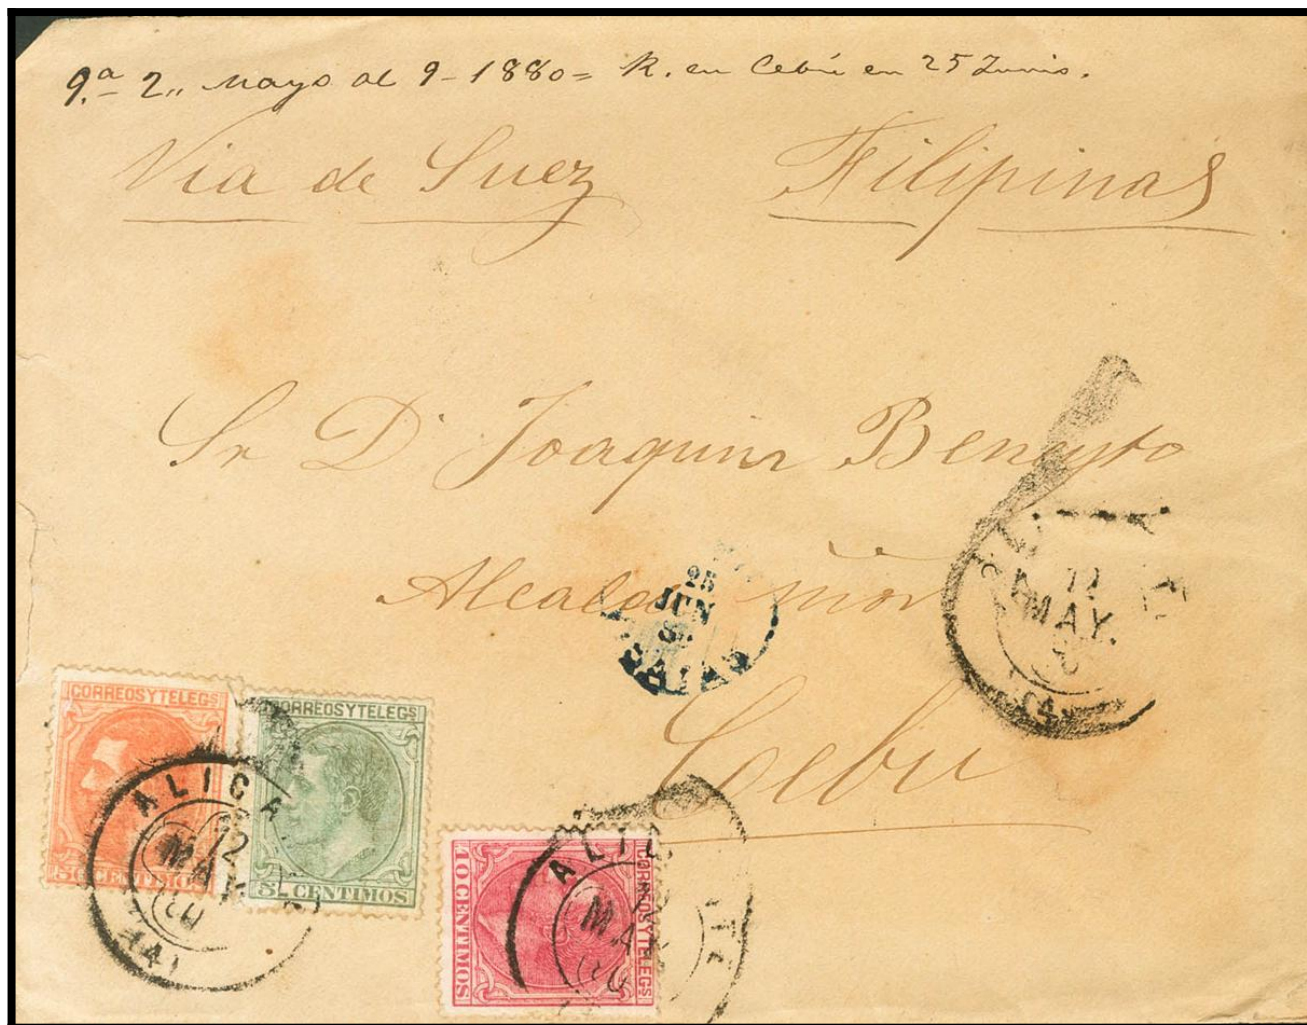 9ª 2,, Mayo al 9-1880= R. en Cebú en 25 Junio.
Via de Suez Filipinas
Sr D. Joaquin Beneyto
Alcalde mor
Cebu
25
JUN
11
MAY.
(4)
CORREOS Y TELEGS
CORREOS Y TELEGS
ALICA
12
MAY
80
(14)
CENTIMOS
5 CENTIMOS
CORREOS Y TELEGS
10 CENTIMOS
ALIC
MAY
(80)